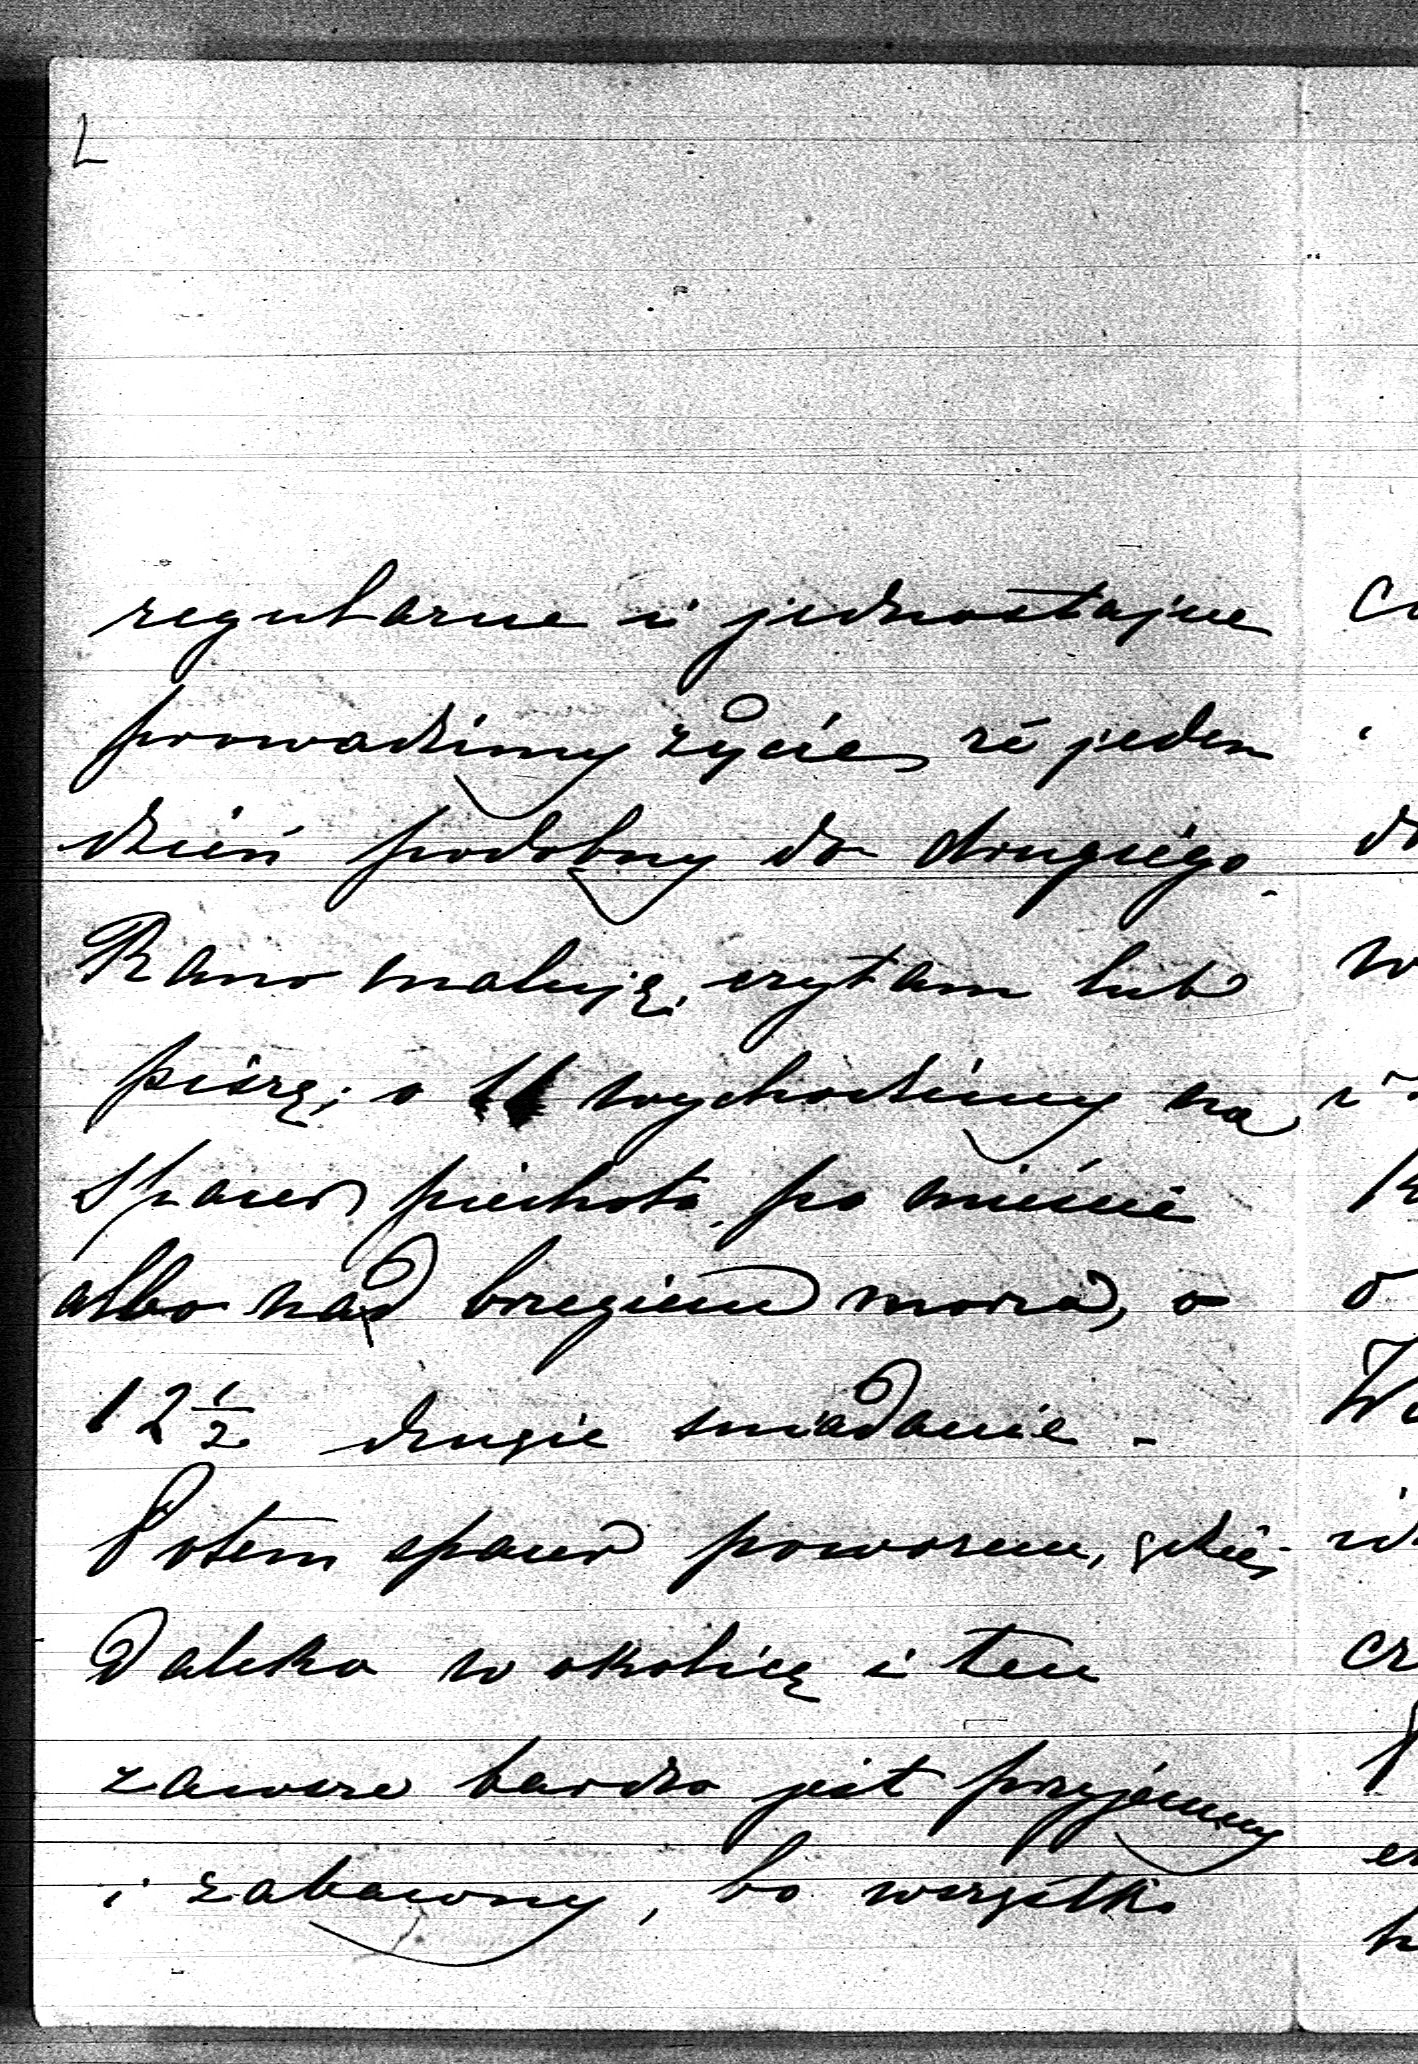 regularne i jednostajne
prowadzimy życie, że jeden
dzień podobny do drugiégo.
Rano maluję, czytam lub
piszę; o 11 wychodzimy na
spacer piechotą po mieście
albo nad brzegiem morza, o
12 1/2 drugie sniadanie.
Potem spacer powozem, gdzieś
daleko w okolicę i ten
zawsze bardzo jest przyjémny
i zabawny, bo wszystko